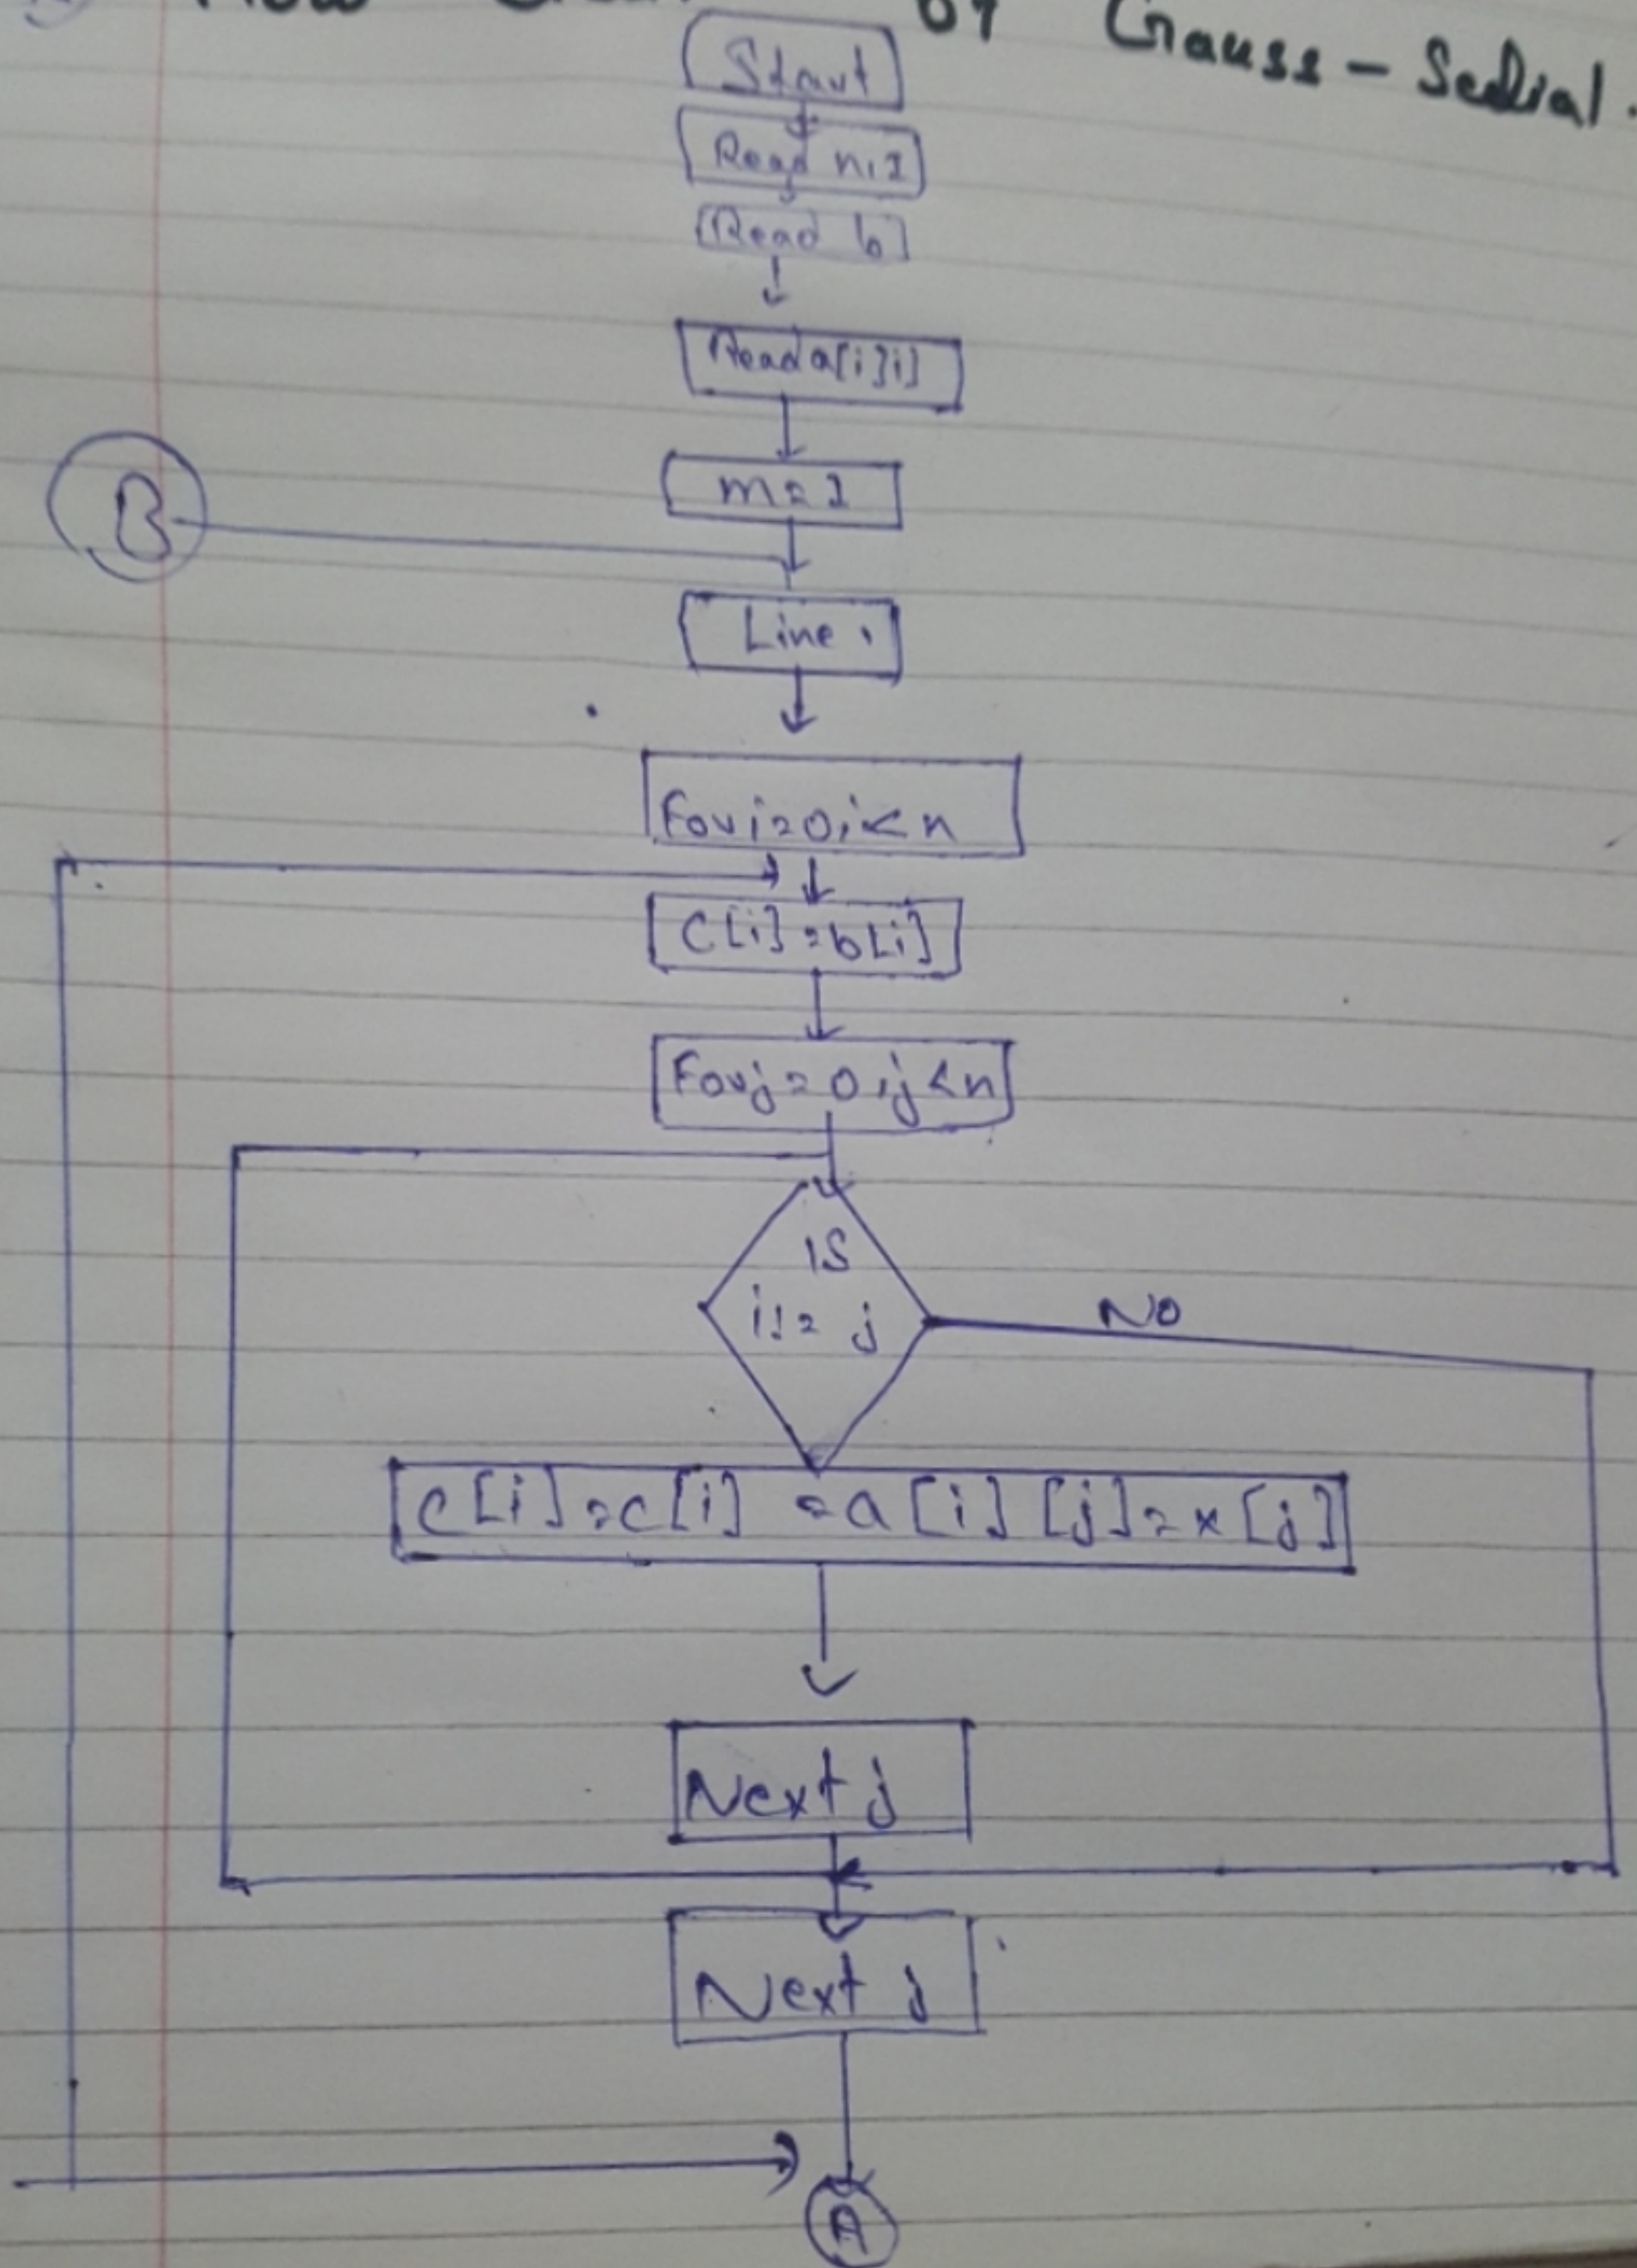 of Gauss - Sedial.
Start
Read n, 1
Read b
Read a[i]i]
m = 1
B
Line
For i = 0, i < n
C[i] = b[i]
For j = 0, j < n
IS
i != j
NO
c[i] = c[i] = a[i] [j] = x[j]
Next j
Next j
A